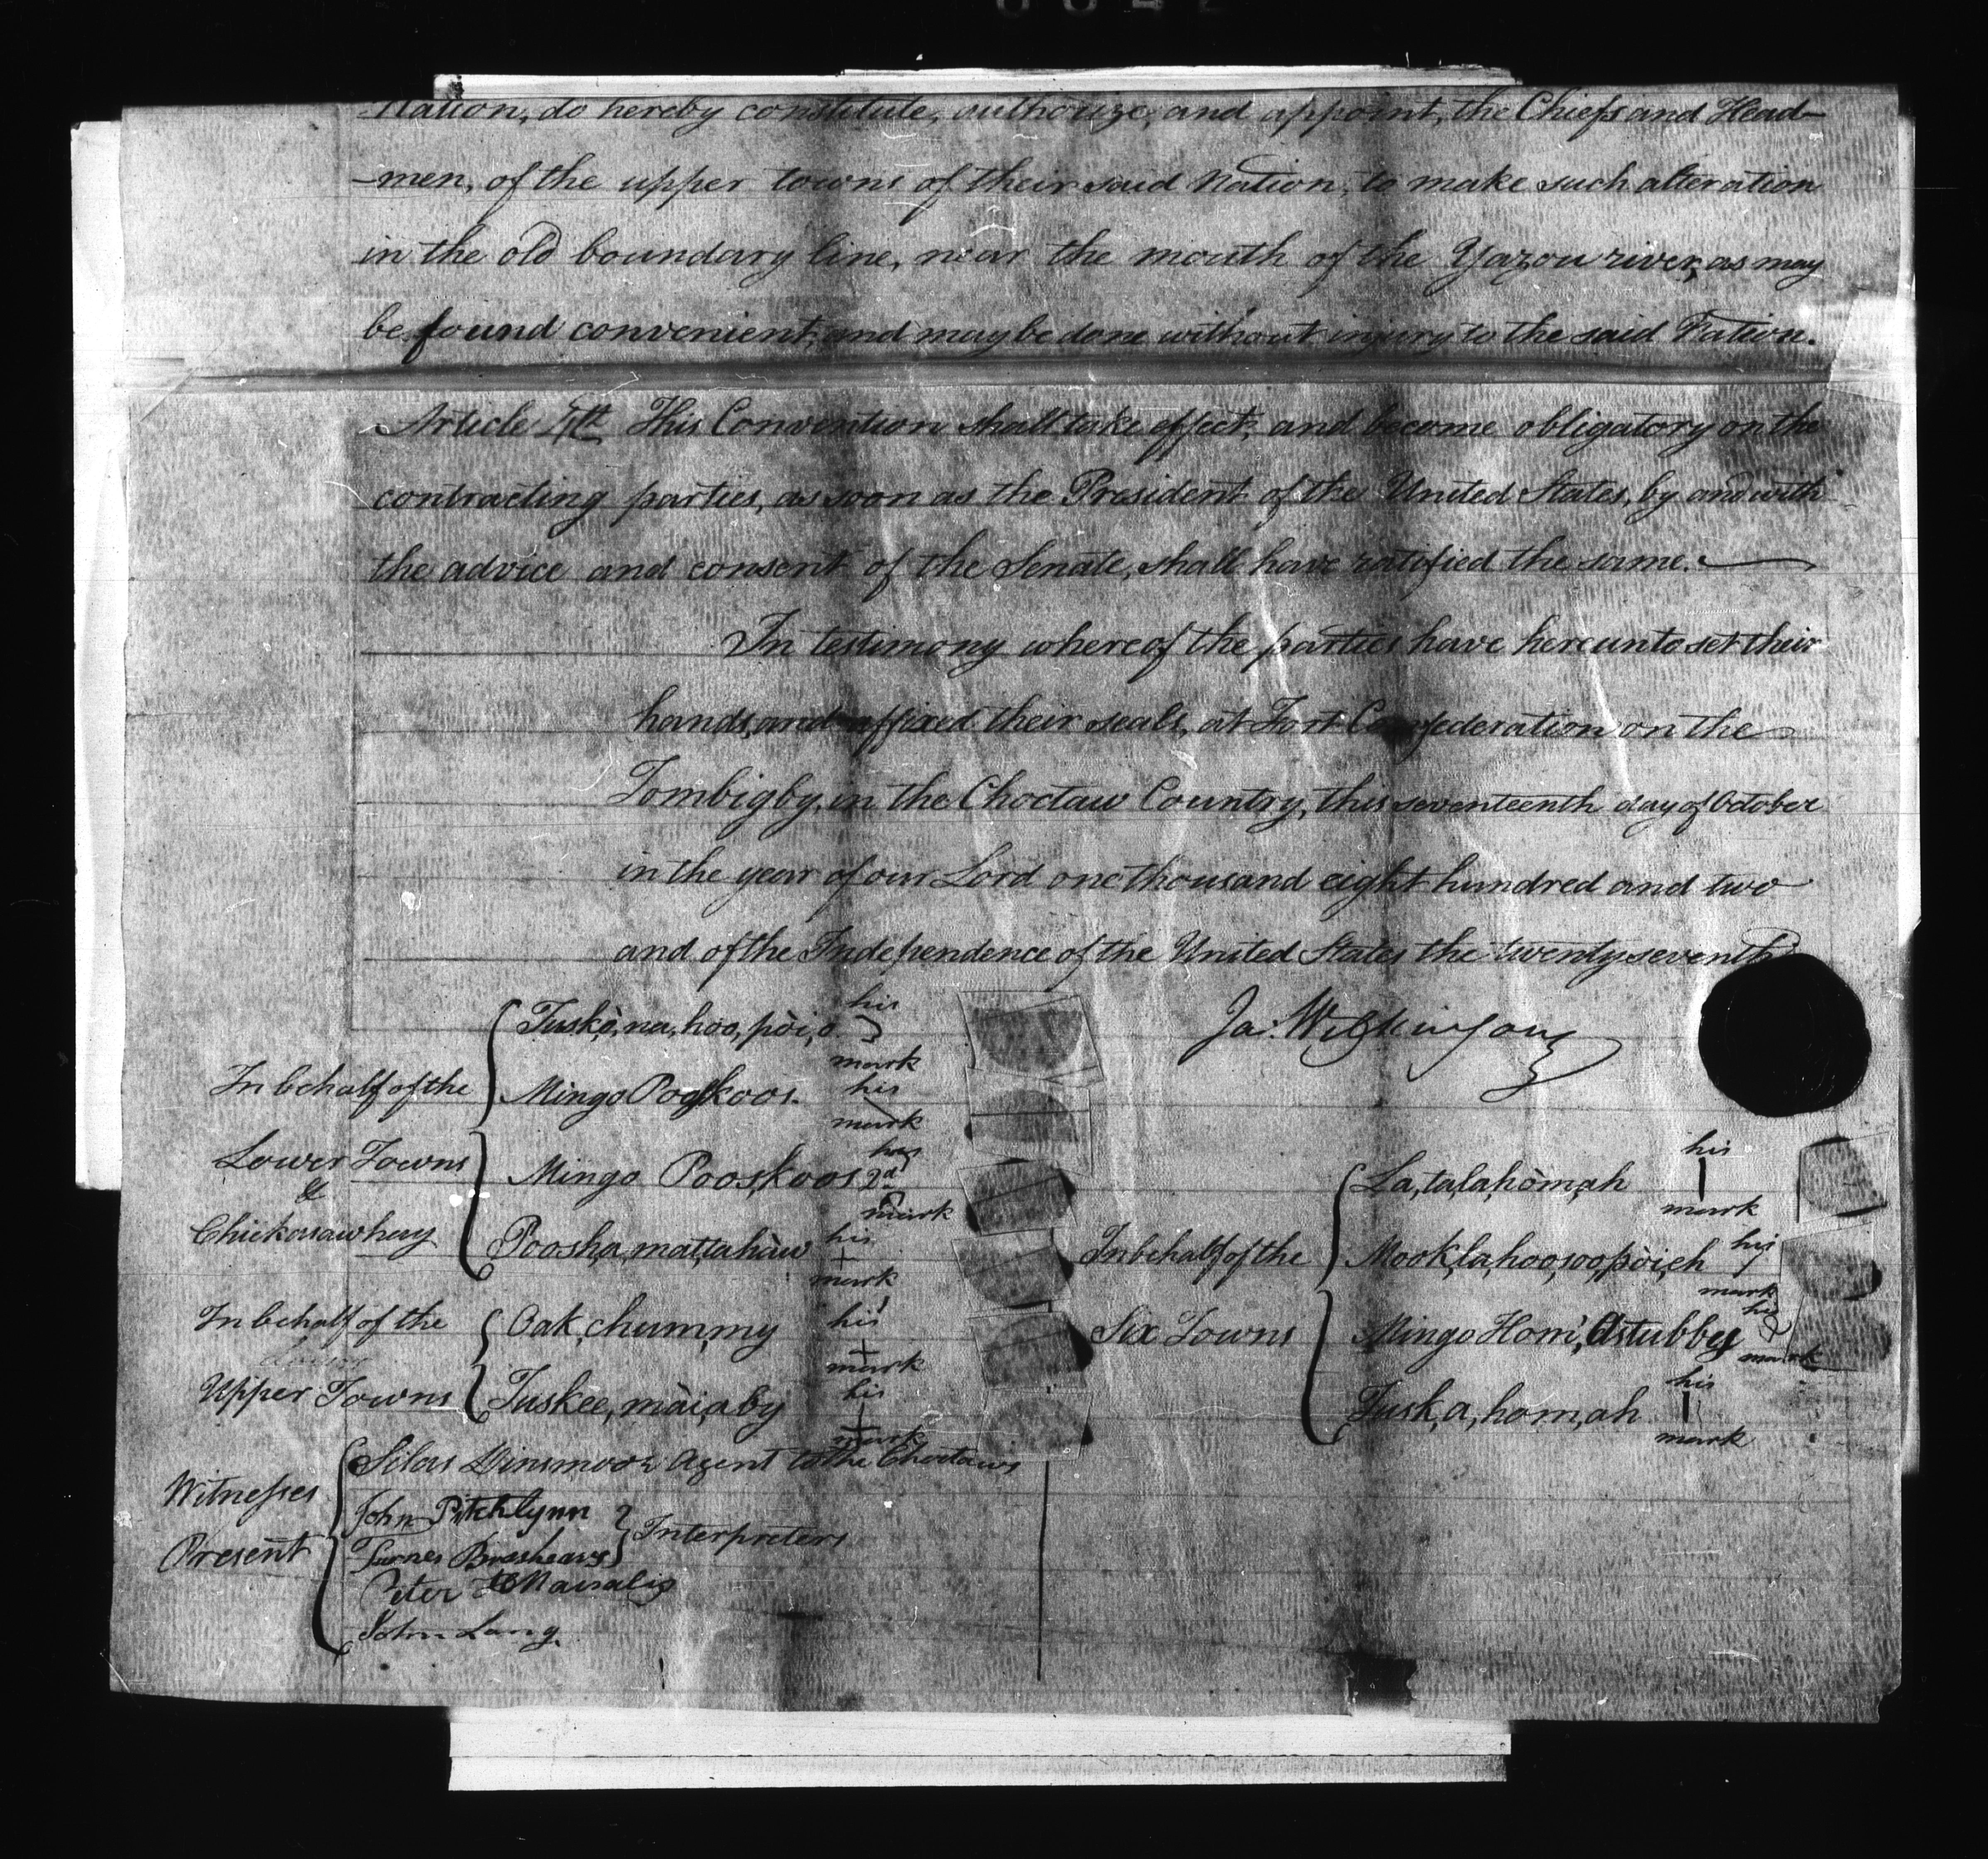 Nation, do hereby constitute, authorize, and appoint, the Chiefs and Head-
-men, of the upper towns of their said Nation, to make such alteration
in the old boundary line, near the mouth of the Yazou river, as may
be found convenient, and may be done without injury to the said Nation.
Article 4th This Convention shall take effect, and become obligatory on the
contracting parties, as soon as the President of the United States, by and with
the advice and consent of the Senate, shall have ratified the same.
In testimony whereof the parties have hereunto set their
hands, and affixed their seals, at Fort Confederation on the
Tombigby, in the Choctaw Country, this seventeenth day of October
in the year of our Lord one thousand eight hundred and two
and of the Independence of the United States the twenty seventh
Ja: Wilkinson
In behalf of the
Lower Towns
&
Chickasawhay
Tuskò,na,hoo,pòi,o his mark
Mingo Pooskoos. his mark
Mingo Pooskoos 2d his mark
Poosha,mattahàw his mark
In behalf of the
Upper Towns
Oak,chum,my his mark
Tuskee,màiaby his mark
In behalf of the
Six Towns
La,talahòmah his mark
Mooklahoosoopòieh his mark
Mingo Hom,Astubby his mark
Tusk,a,hom,ah his mark
Witnesses
Present
Silas Dinsmoor Agent to the Choctaws
John Pitchlynn
Turner Brashears
Interpreters
Peter H Naisalis
John Long.